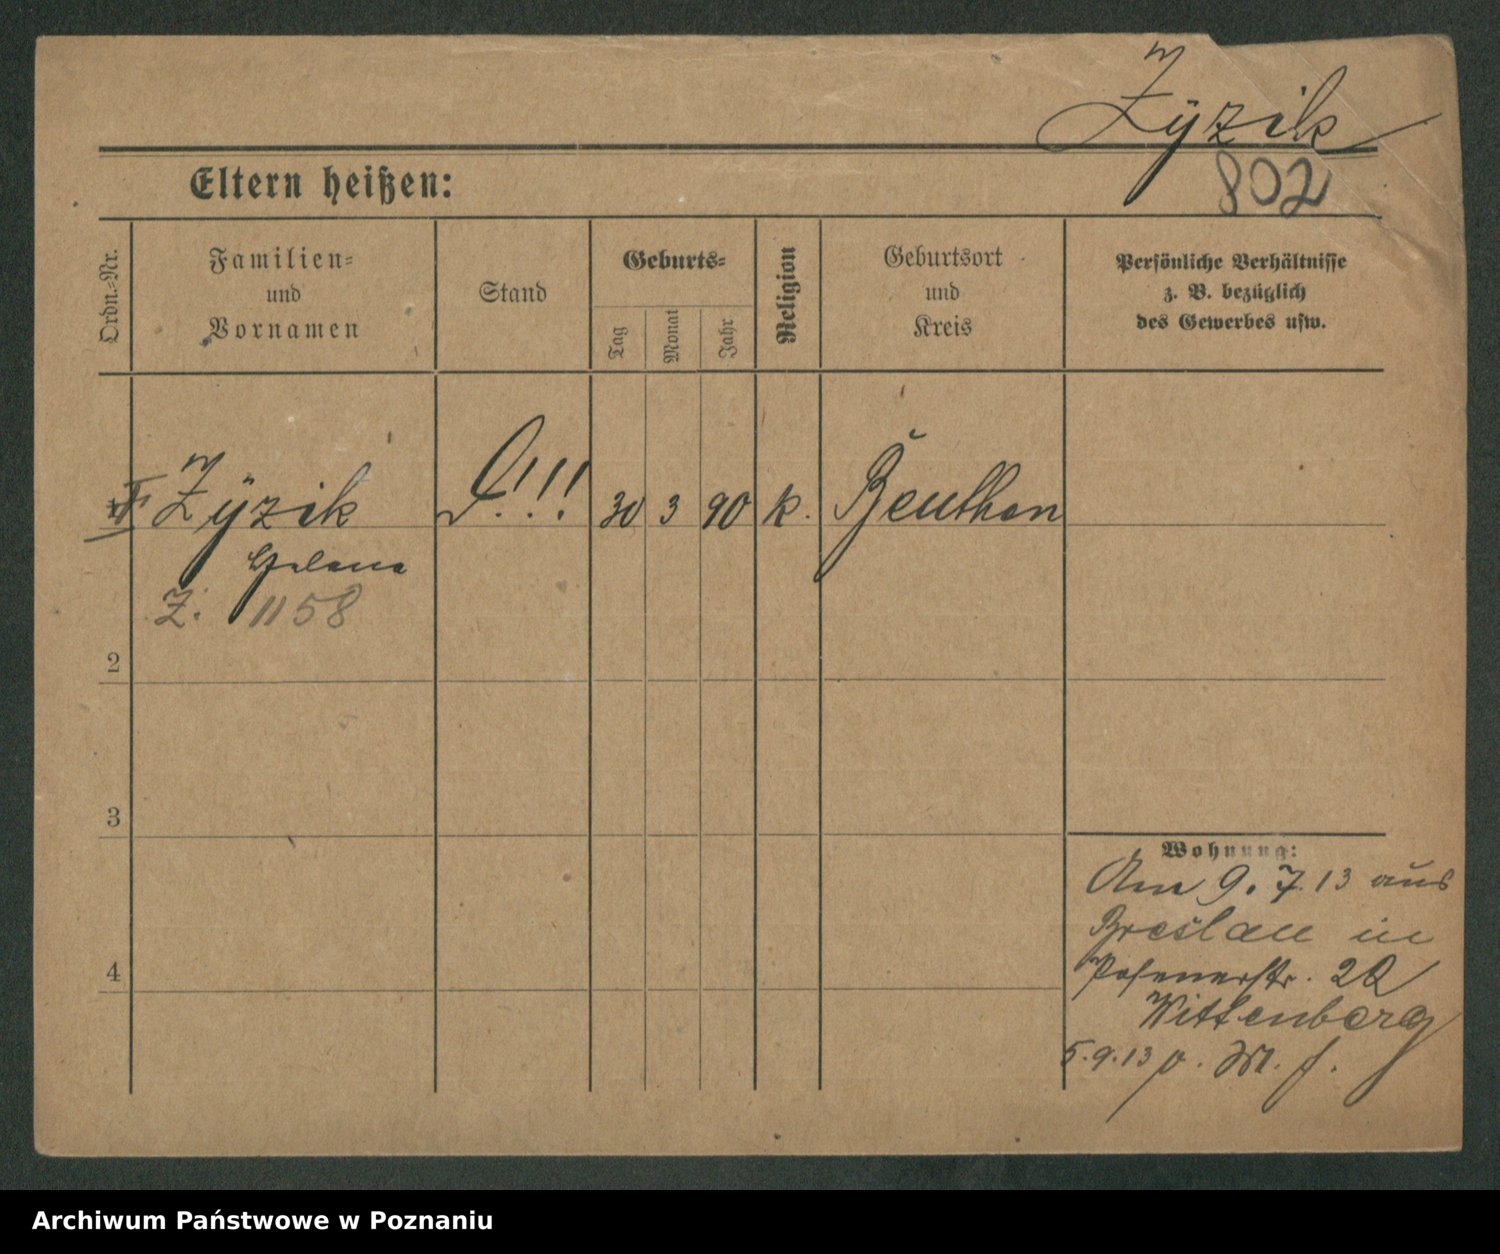 Zÿzik
802
Eltern heißen:
Ordn.-Nr.
Familien-
und
Vornamen
Stand
Geburts-
Tag
Monat
Jahr
Religion
Geburtsort
und
Kreis
Persönliche Verhältnisse
z. B. bezüglich
des Gewerbes usw.
Zÿzik
!!!
30 3 90 k. Beuthen
Helena
Z. 1158
2
3
4
Wohnung:
Am 9. 7. 13 aus
Breslau in
Posenerstr. 22
Wittenberg
5.9.13
Archiwum Państwowe w Poznaniu